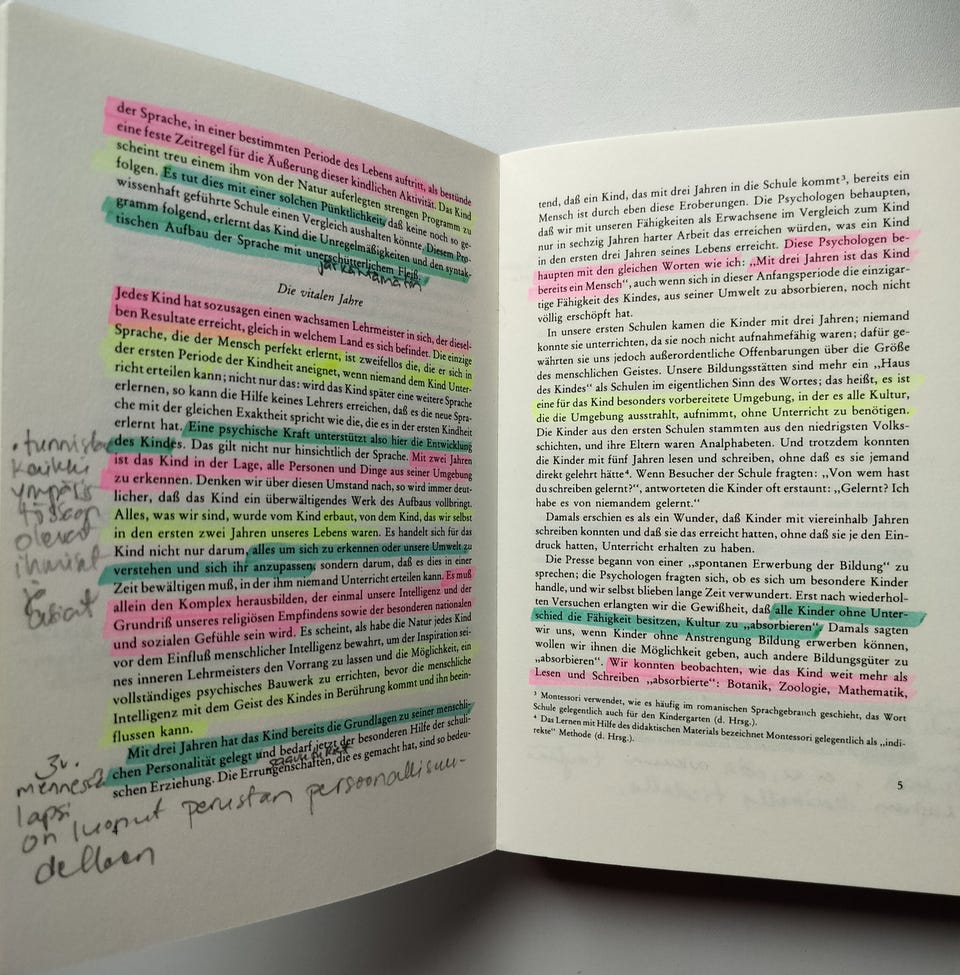 der Sprache, in einer bestimmten Periode des Lebens auftritt, als bestünde
eine feste Zeitregel für die Äußerung dieser kindlichen Aktivität. Das Kind
scheint treu einem ihm von der Natur auferlegten strengen Programm zu
folgen. Es tut dies mit einer solchen Pünktlichkeit, daß keine noch so ge-
wissenhaft geführte Schule einen Vergleich aushalten könnte. Diesem Pro-
gramm folgend, erlernt das Kind die Unregelmäßigkeiten und den syntak-
tischen Aufbau der Sprache mit unerschütterlichem Fleiß.
Die vitalen Jahre
Jedes Kind hat sozusagen einen wachsamen Lehrmeister in sich, der diesel-
ben Resultate erreicht, gleich in welchem Land es sich befindet. Die einzige
Sprache, die der Mensch perfekt erlernt, ist zweifellos die, die er sich in
der ersten Periode der Kindheit aneignet, wenn niemand dem Kind Unter-
richt erteilen kann; nicht nur das: wird das Kind später eine weitere Sprache
erlernen, so kann die Hilfe keines Lehrers erreichen, daß es die neue Spra-
che mit der gleichen Exaktheit spricht wie die, die es in der ersten Kindheit
erlernt hat. Eine psychische Kraft unterstützt also hier die Entwicklung
des Kindes. Das gilt nicht nur hinsichtlich der Sprache. Mit zwei Jahren
ist das Kind in der Lage, alle Personen und Dinge aus seiner Umgebung
zu erkennen. Denken wir über diesen Umstand nach, so wird immer deut-
licher, daß das Kind ein überwältigendes Werk des Aufbaus vollbringt.
Alles, was wir sind, wurde vom Kind erbaut, von dem Kind, das wir selbst
in den ersten zwei Jahren unseres Lebens waren. Es handelt sich für das
Kind nicht nur darum, alles um sich zu erkennen oder unsere Umwelt zu
verstehen und sich ihr anzupassen, sondern darum, daß es dies in einer
Zeit bewältigen muß, in der ihm niemand Unterricht erteilen kann. Es muß
allein den Komplex herausbilden, der einmal unsere Intelligenz und der
Grundriß unseres religiösen Empfindens sowie der besonderen nationalen
und sozialen Gefühle sein wird. Es scheint, als habe die Natur jedes Kind
vor dem Einfluß menschlicher Intelligenz bewahrt, um der Inspiration sei-
nes inneren Lehrmeisters den Vorrang zu lassen und die Möglichkeit, ein
vollständiges psychisches Bauwerk zu errichten, bevor die menschliche
Intelligenz mit dem Geist des Kindes in Berührung kommt und ihn beein-
flussen kann.
Mit drei Jahren hat das Kind bereits die Grundlagen zu seiner menschli-
chen Personalität gelegt und bedarf jetzt der besonderen Hilfe der schuli-
schen Erziehung. Die Errungenschaften, die es gemacht hat, sind so bedeu-
kaikki
olevat
ihmiset
ja
3v.
lapsi
on luonut perustan
delleen
tend, daß ein Kind, das mit drei Jahren in die Schule kommt³, bereits ein
Mensch ist durch eben diese Eroberungen. Die Psychologen behaupten,
daß wir mit unseren Fähigkeiten als Erwachsene im Vergleich zum Kind
nur in sechzig Jahren harter Arbeit das erreichen würden, was ein Kind
in den ersten drei Jahren seines Lebens erreicht. Diese Psychologen be-
haupten mit den gleichen Worten wie ich: „Mit drei Jahren ist das Kind
bereits ein Mensch", auch wenn sich in dieser Anfangsperiode die einzigar-
tige Fähigkeit des Kindes, aus seiner Umwelt zu absorbieren, noch nicht
völlig erschöpft hat.
In unsere ersten Schulen kamen die Kinder mit drei Jahren; niemand
konnte sie unterrichten, da sie noch nicht aufnahmefähig waren; dafür ge-
währten sie uns jedoch außerordentliche Offenbarungen über die Größe
des menschlichen Geistes. Unsere Bildungsstätten sind mehr ein „Haus
des Kindes" als Schulen im eigentlichen Sinn des Wortes; das heißt, es ist
eine für das Kind besonders vorbereitete Umgebung, in der es alle Kultur,
die die Umgebung ausstrahlt, aufnimmt, ohne Unterricht zu benötigen.
Die Kinder aus den ersten Schulen stammten aus den niedrigsten Volks-
schichten, und ihre Eltern waren Analphabeten. Und trotzdem konnten
die Kinder mit fünf Jahren lesen und schreiben, ohne daß es sie jemand
direkt gelehrt hätte⁴. Wenn Besucher der Schule fragten: „Von wem hast
du schreiben gelernt?", antworteten die Kinder oft erstaunt: „Gelernt? Ich
habe es von niemandem gelernt."
Damals erschien es als ein Wunder, daß Kinder mit viereinhalb Jahren
schreiben konnten und daß sie das erreicht hatten, ohne daß sie je den Ein-
druck hatten, Unterricht erhalten zu haben.
Die Presse begann von einer „spontanen Erwerbung der Bildung" zu
sprechen; die Psychologen fragten sich, ob es sich um besondere Kinder
handle, und wir selbst blieben lange Zeit verwundert. Erst nach wiederhol-
ten Versuchen erlangten wir die Gewißheit, daß alle Kinder ohne Unter-
schied die Fähigkeit besitzen, Kultur zu „absorbieren". Damals sagten
wir uns, wenn Kinder ohne Anstrengung Bildung erwerben können,
wollen wir ihnen die Möglichkeit geben, auch andere Bildungsgüter zu
„absorbieren". Wir konnten beobachten, wie das Kind weit mehr als
Lesen und Schreiben „absorbierte": Botanik, Zoologie, Mathematik,
³ Montessori verwendet, wie es häufig im romanischen Sprachgebrauch geschieht, das Wort
Schule gelegentlich auch für den Kindergarten (d. Hrsg.).
⁴ Das Lernen mit Hilfe des didaktischen Materials bezeichnet Montessori gelegentlich als „indi-
rekte" Methode (d. Hrsg.).
5